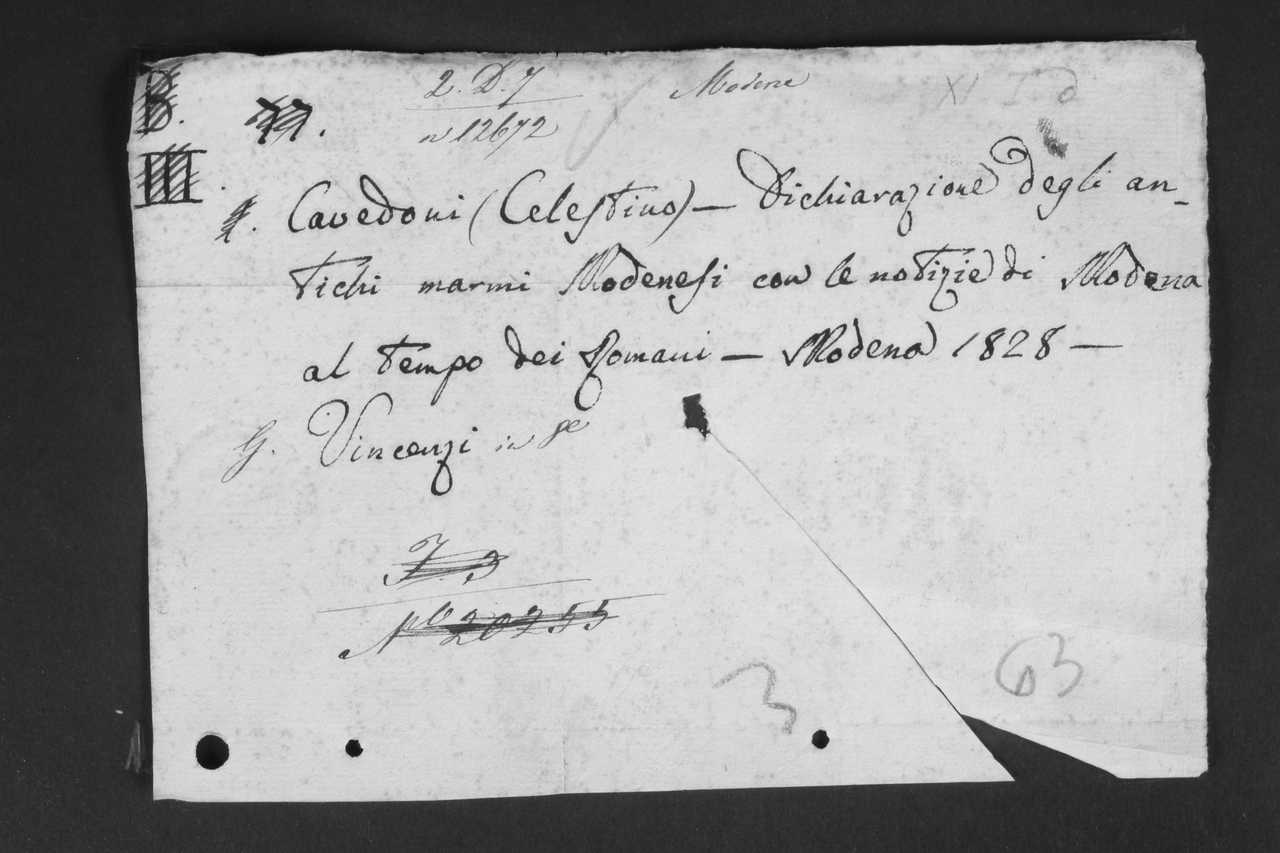 B.
2. D. 7
Modena
XI I d
n 12672
III
Cavedoni (Celestino) — Dichiarazione degli an-
tichi marmi Modenesi con le notizie di Modena
al tempo dei Romani — Modena 1828 —
G. Vincenzi in 8e
F. 3
No 20355
3
63